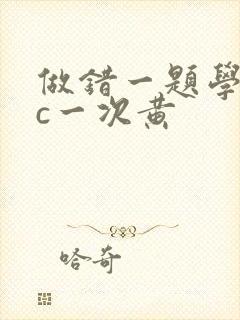 做錯一題學
c一次黃
哈奇